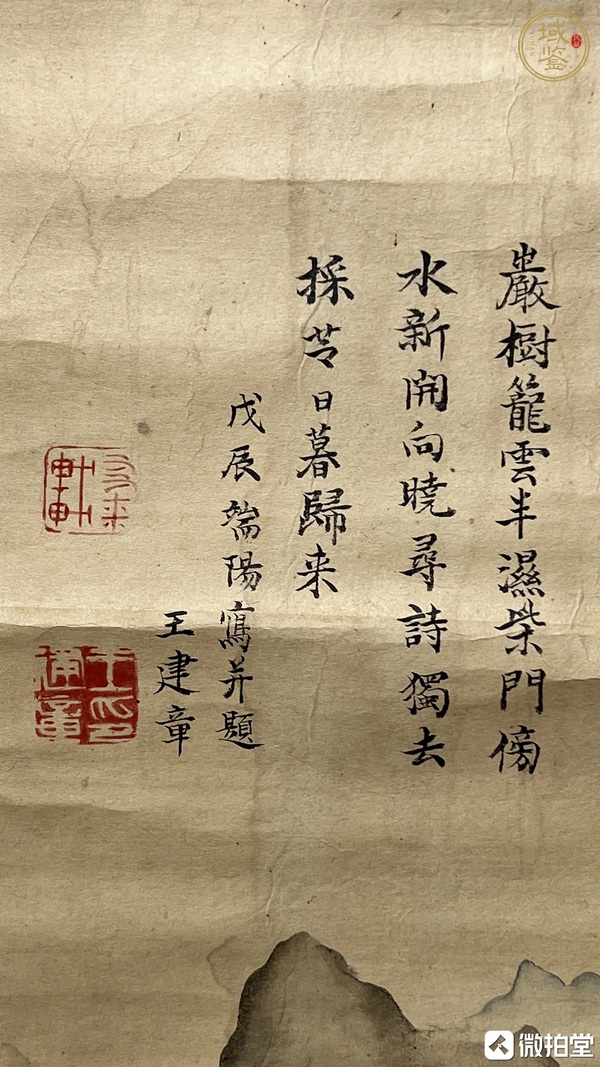 巖樹籠雲半濕柴門傍
水新開向曉尋詩獨去
採芝日暮歸来
戊辰端陽寫并題
王建章
軒
王建章印
域鉴
微拍堂